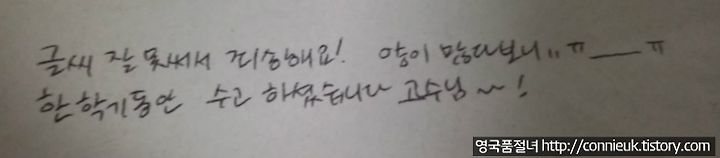 글씨 잘 못써서 죄송해요! 양이 많다보니,, ㅠ___ㅠ
한 학기동안 수고 하셨습니다 교수님 ~!
영국품절녀 http://connieuk.tistory.com